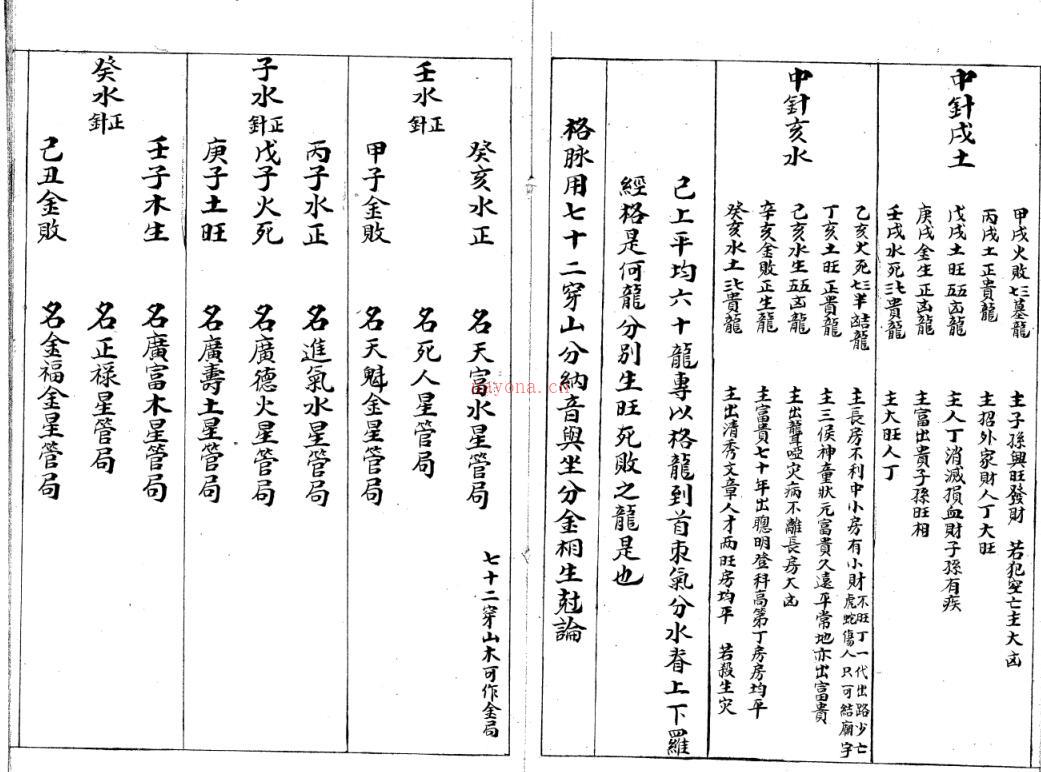 中針戌土
甲戌火敗七三墓龍　主子孫興旺發財　若犯空亡主大凶
丙戌土正貴龍　主招外家財人丁大旺
戊戌土旺五五凶龍　主人丁消滅損血財子孫有疾
庚戌金生正凶龍　主富出貴子孫旺相
壬戌水死三七貴龍　主大旺人丁
中針亥水
乙亥火死七三半結龍　主長房不利中小房有小財不旺丁一代出路少亡虎蛇傷人只可結廟宇
丁亥土旺正貴龍　主三侯神童狀元富貴久遠平常地亦出富貴
己亥水生五五凶龍　主出聾啞灾病不離長房大凶
辛亥金敗正生龍　主富貴七十年出聰明登科高第丁房房均平
癸亥水土三七貴龍　主出清秀文章人才兩旺房均平　若殺生灾
已上平均六十龍專以格龍到首束氣分水脊上下羅
經格是何龍分別生旺死敗之龍是也
格脉用七十二穿山分納音與坐分金相生尅論
七十二穿山木可作金局
壬水正針
癸亥水正　名天富水星管局
名死人星管局
甲子金敗　名天魁金星管局
子水正針
丙子水正　名進氣水星管局
戊子火死　名廣德火星管局
庚子土旺　名廣壽土星管局
癸水正針
壬子木生　名廣富木星管局
名正祿星管局
己丑金敗　名金福金星管局
nayona.cn